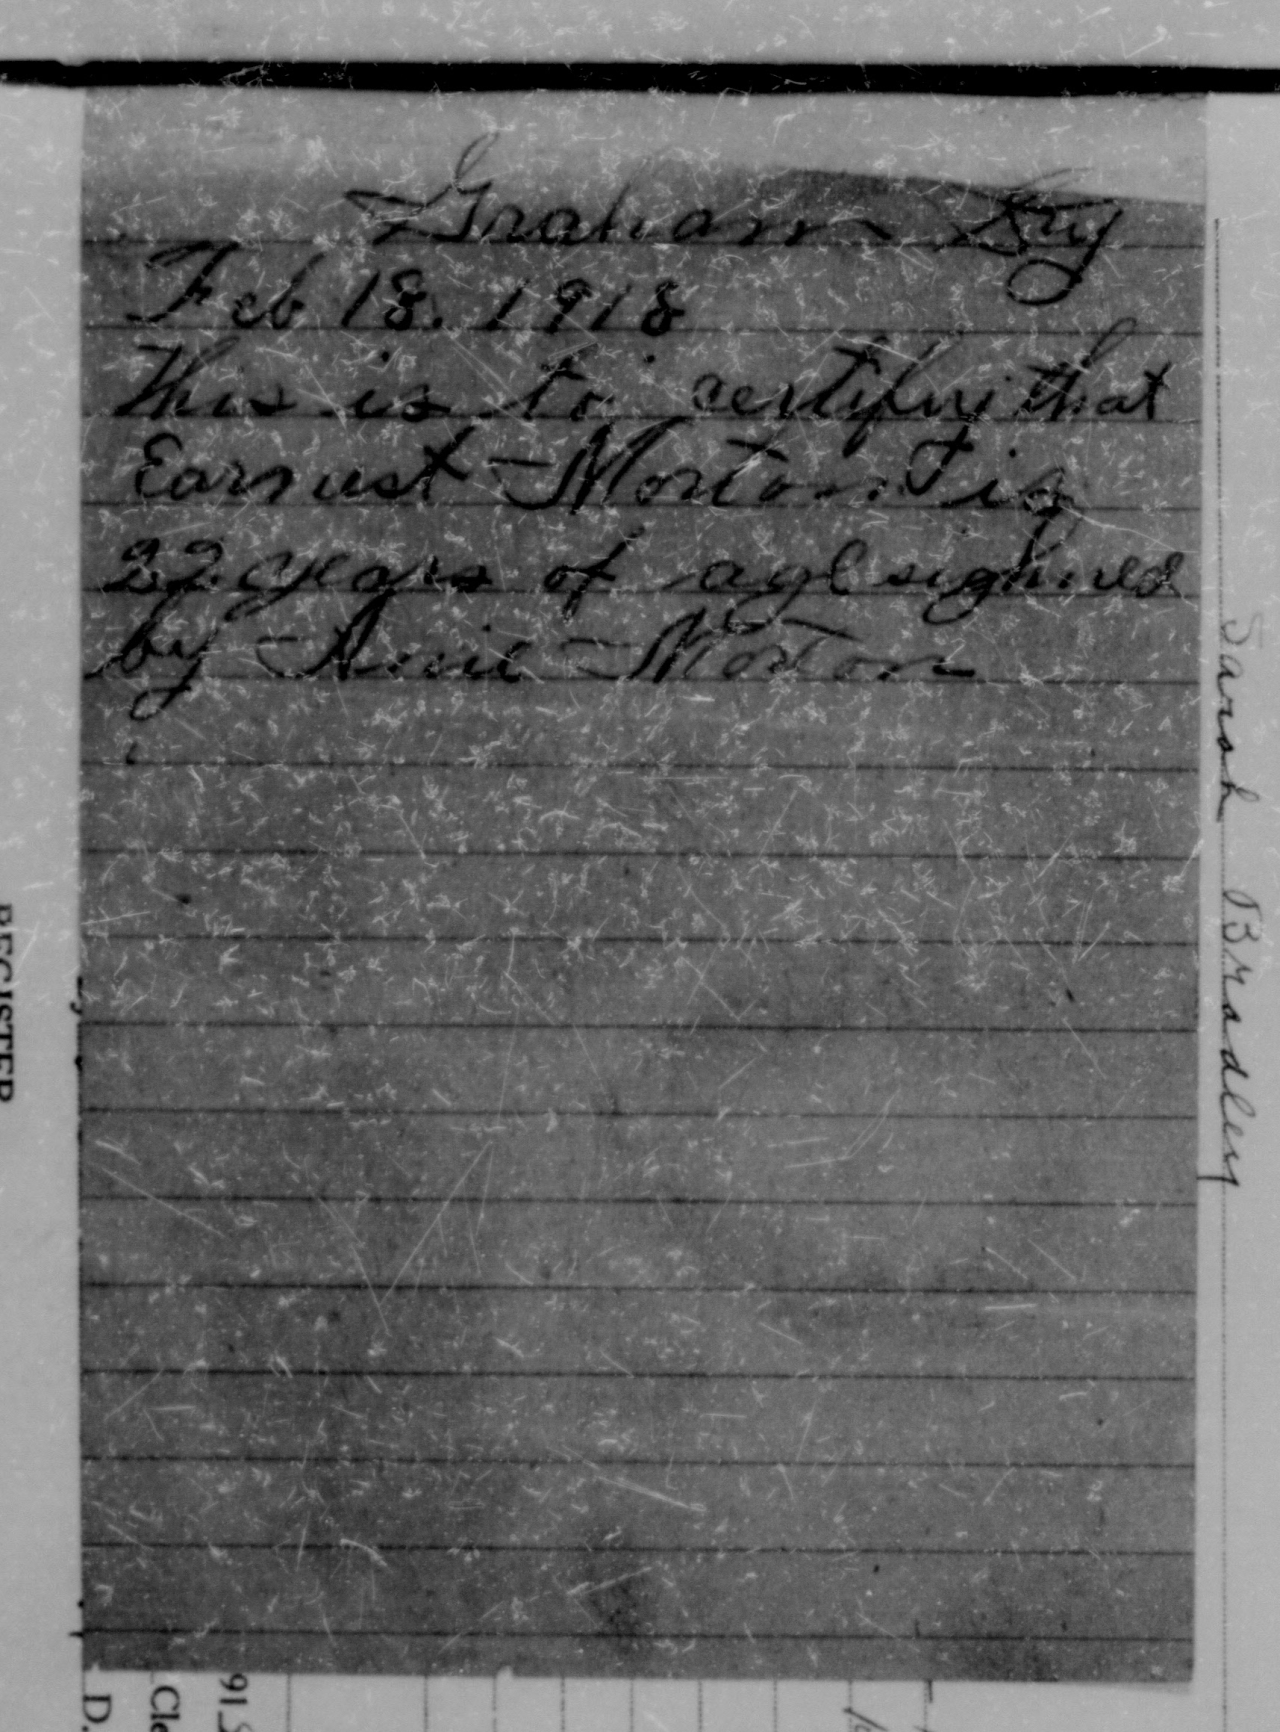 Graham Ky
Feb 18. 1918
This is to certifiy that
Earnust Morton is
22 years of age sighned
by Anie Morton
Sarah Bradley
REGISTER
91
Cle
D.